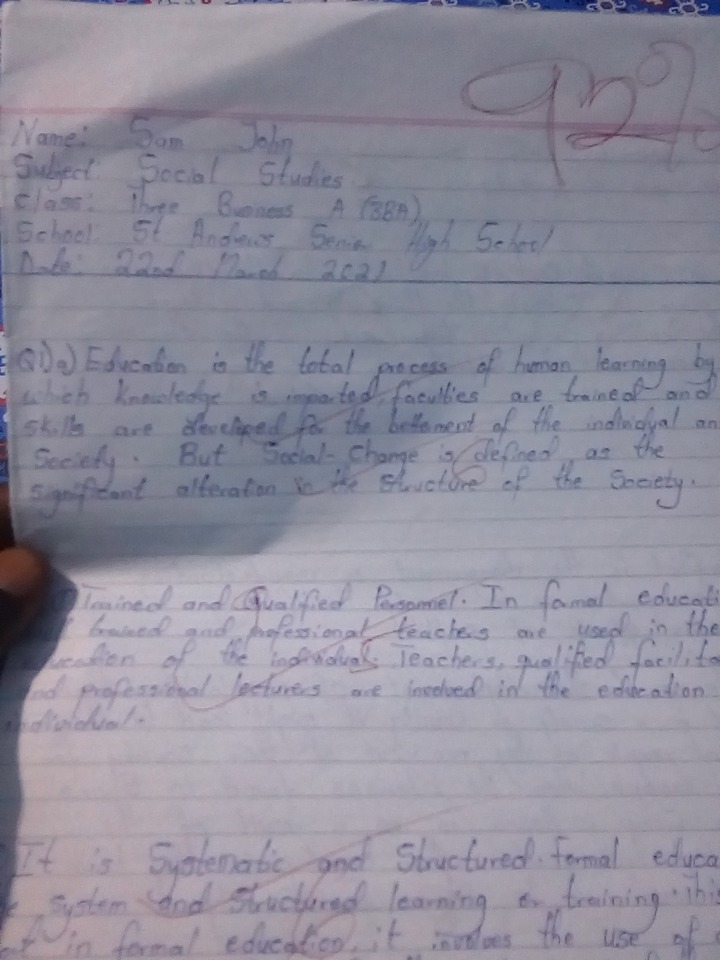 92%
Name: Sam John
Subject: Social Studies
Class: Three Business A (3BA)
School: St Andrews Senior High School
Date: 22nd March 2021
Q1)a) Education is the total process of human learning by
which knowledge is imparted, faculties are trained and
skills are developed for the betterment of the individual an
Society. But Social-Change is defined as the
significant alteration in the structure of the Society.
Trained and Qualified Personnel. In formal educati
trained and professional teachers are used in the
ucation of the individual. Teachers, qualified facilita
nd professional lecturers are involved in the education
ndividual.
It is Systematic and Structured. Formal educa
system and structured learning or training. This
in formal education, it involves the use of